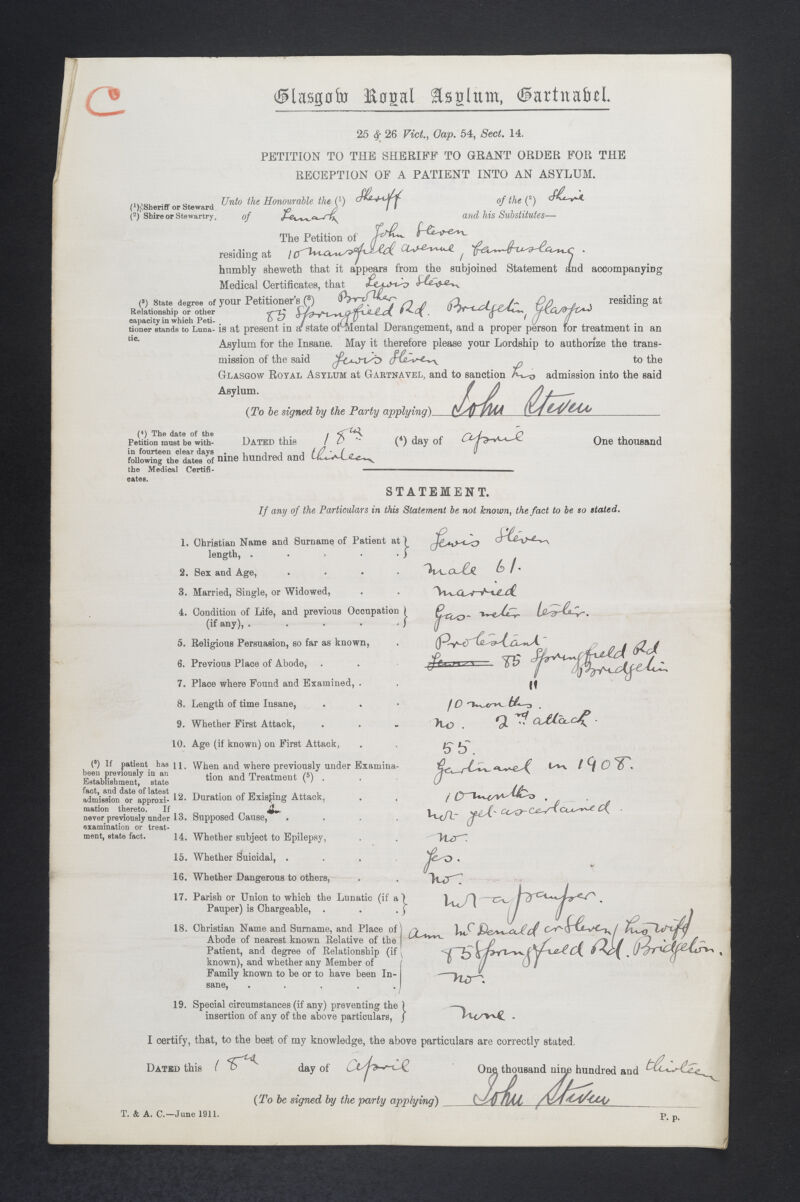 C
Glasgow Royal Asylum, Gartnabel.
25 & 26 Vict., Cap. 54, Sect. 14.
PETITION TO THE SHERIFF TO GRANT ORDER FOR THE
RECEPTION OF A PATIENT INTO AN ASYLUM.
(1) Sheriff or Steward
(2) Shire or Stewartry.
Unto the Honourable the (1) Sheriff of the (2) Shire
of Lanark and his Substitutes—
The Petition of John Steven
residing at 10 Mansfield avenue, Cambuslang.
humbly sheweth that it appears from the subjoined Statement and accompanying
Medical Certificates, that Lewis Steven
(3) State degree of
Relationship or other
capacity in which Peti-
tioner stands to Luna-
tic.
your Petitioner's (3) Brother residing at
85 Springfield Rd. Bridgeton, Glasgow
is at present in a state of Mental Derangement, and a proper person for treatment in an
Asylum for the Insane. May it therefore please your Lordship to authorize the trans-
mission of the said Lewis Steven to the
GLASGOW ROYAL ASYLUM at GARTNAVEL, and to sanction his admission into the said
Asylum.
(To be signed by the Party applying) John Steven
(4) The date of the
Petition must be with-
in fourteen clear days
following the dates of
the Medical Certifi-
cates.
DATED this 18th (4) day of april One thousand
nine hundred and thirteen
STATEMENT.
If any of the Particulars in this Statement be not known, the fact to be so stated.
1. Christian Name and Surname of Patient at
length, . . . . . Lewis Steven
2. Sex and Age, . . . . male 61.
3. Married, Single, or Widowed, . . married
4. Condition of Life, and previous Occupation
(if any), . . . . . Gas-meter tester.
5. Religious Persuasion, so far as known, . Protestant
6. Previous Place of Abode, . . 85 Springfield Rd
Bridgeton
7. Place where Found and Examined, . . "
8. Length of time Insane, . . . 10 months.
9. Whether First Attack, . . . no. 2nd attack.
10. Age (if known) on First Attack, . . 55.
(5) If patient has
been previously in an
Establishment, state
fact, and date of latest
admission or approxi-
mation thereto. If
never previously under
examination or treat-
ment, state fact.
11. When and where previously under Examina-
tion and Treatment (5) . . Gartnavel in 1908.
12. Duration of Existing Attack, . . 10 months.
13. Supposed Cause, . . . not yet ascertained.
14. Whether subject to Epilepsy, . . no.
15. Whether Suicidal, . . . . Yes.
16. Whether Dangerous to others, . . no.
17. Parish or Union to which the Lunatic (if a
Pauper) is Chargeable, . . . not a pauper.
18. Christian Name and Surname, and Place of
Abode of nearest known Relative of the
Patient, and degree of Relationship (if
known), and whether any Member of
Family known to be or to have been In-
sane, . . . . .
Ann McDonald or Steven, his wife
85 Springfield Rd. Bridgeton.
no.
19. Special circumstances (if any) preventing the
insertion of any of the above particulars, none.
I certify, that, to the best of my knowledge, the above particulars are correctly stated.
DATED this 18th day of april One thousand nine hundred and thirteen
(To be signed by the party applying) John Steven
T. & A. C.—June 1911.
P. p.